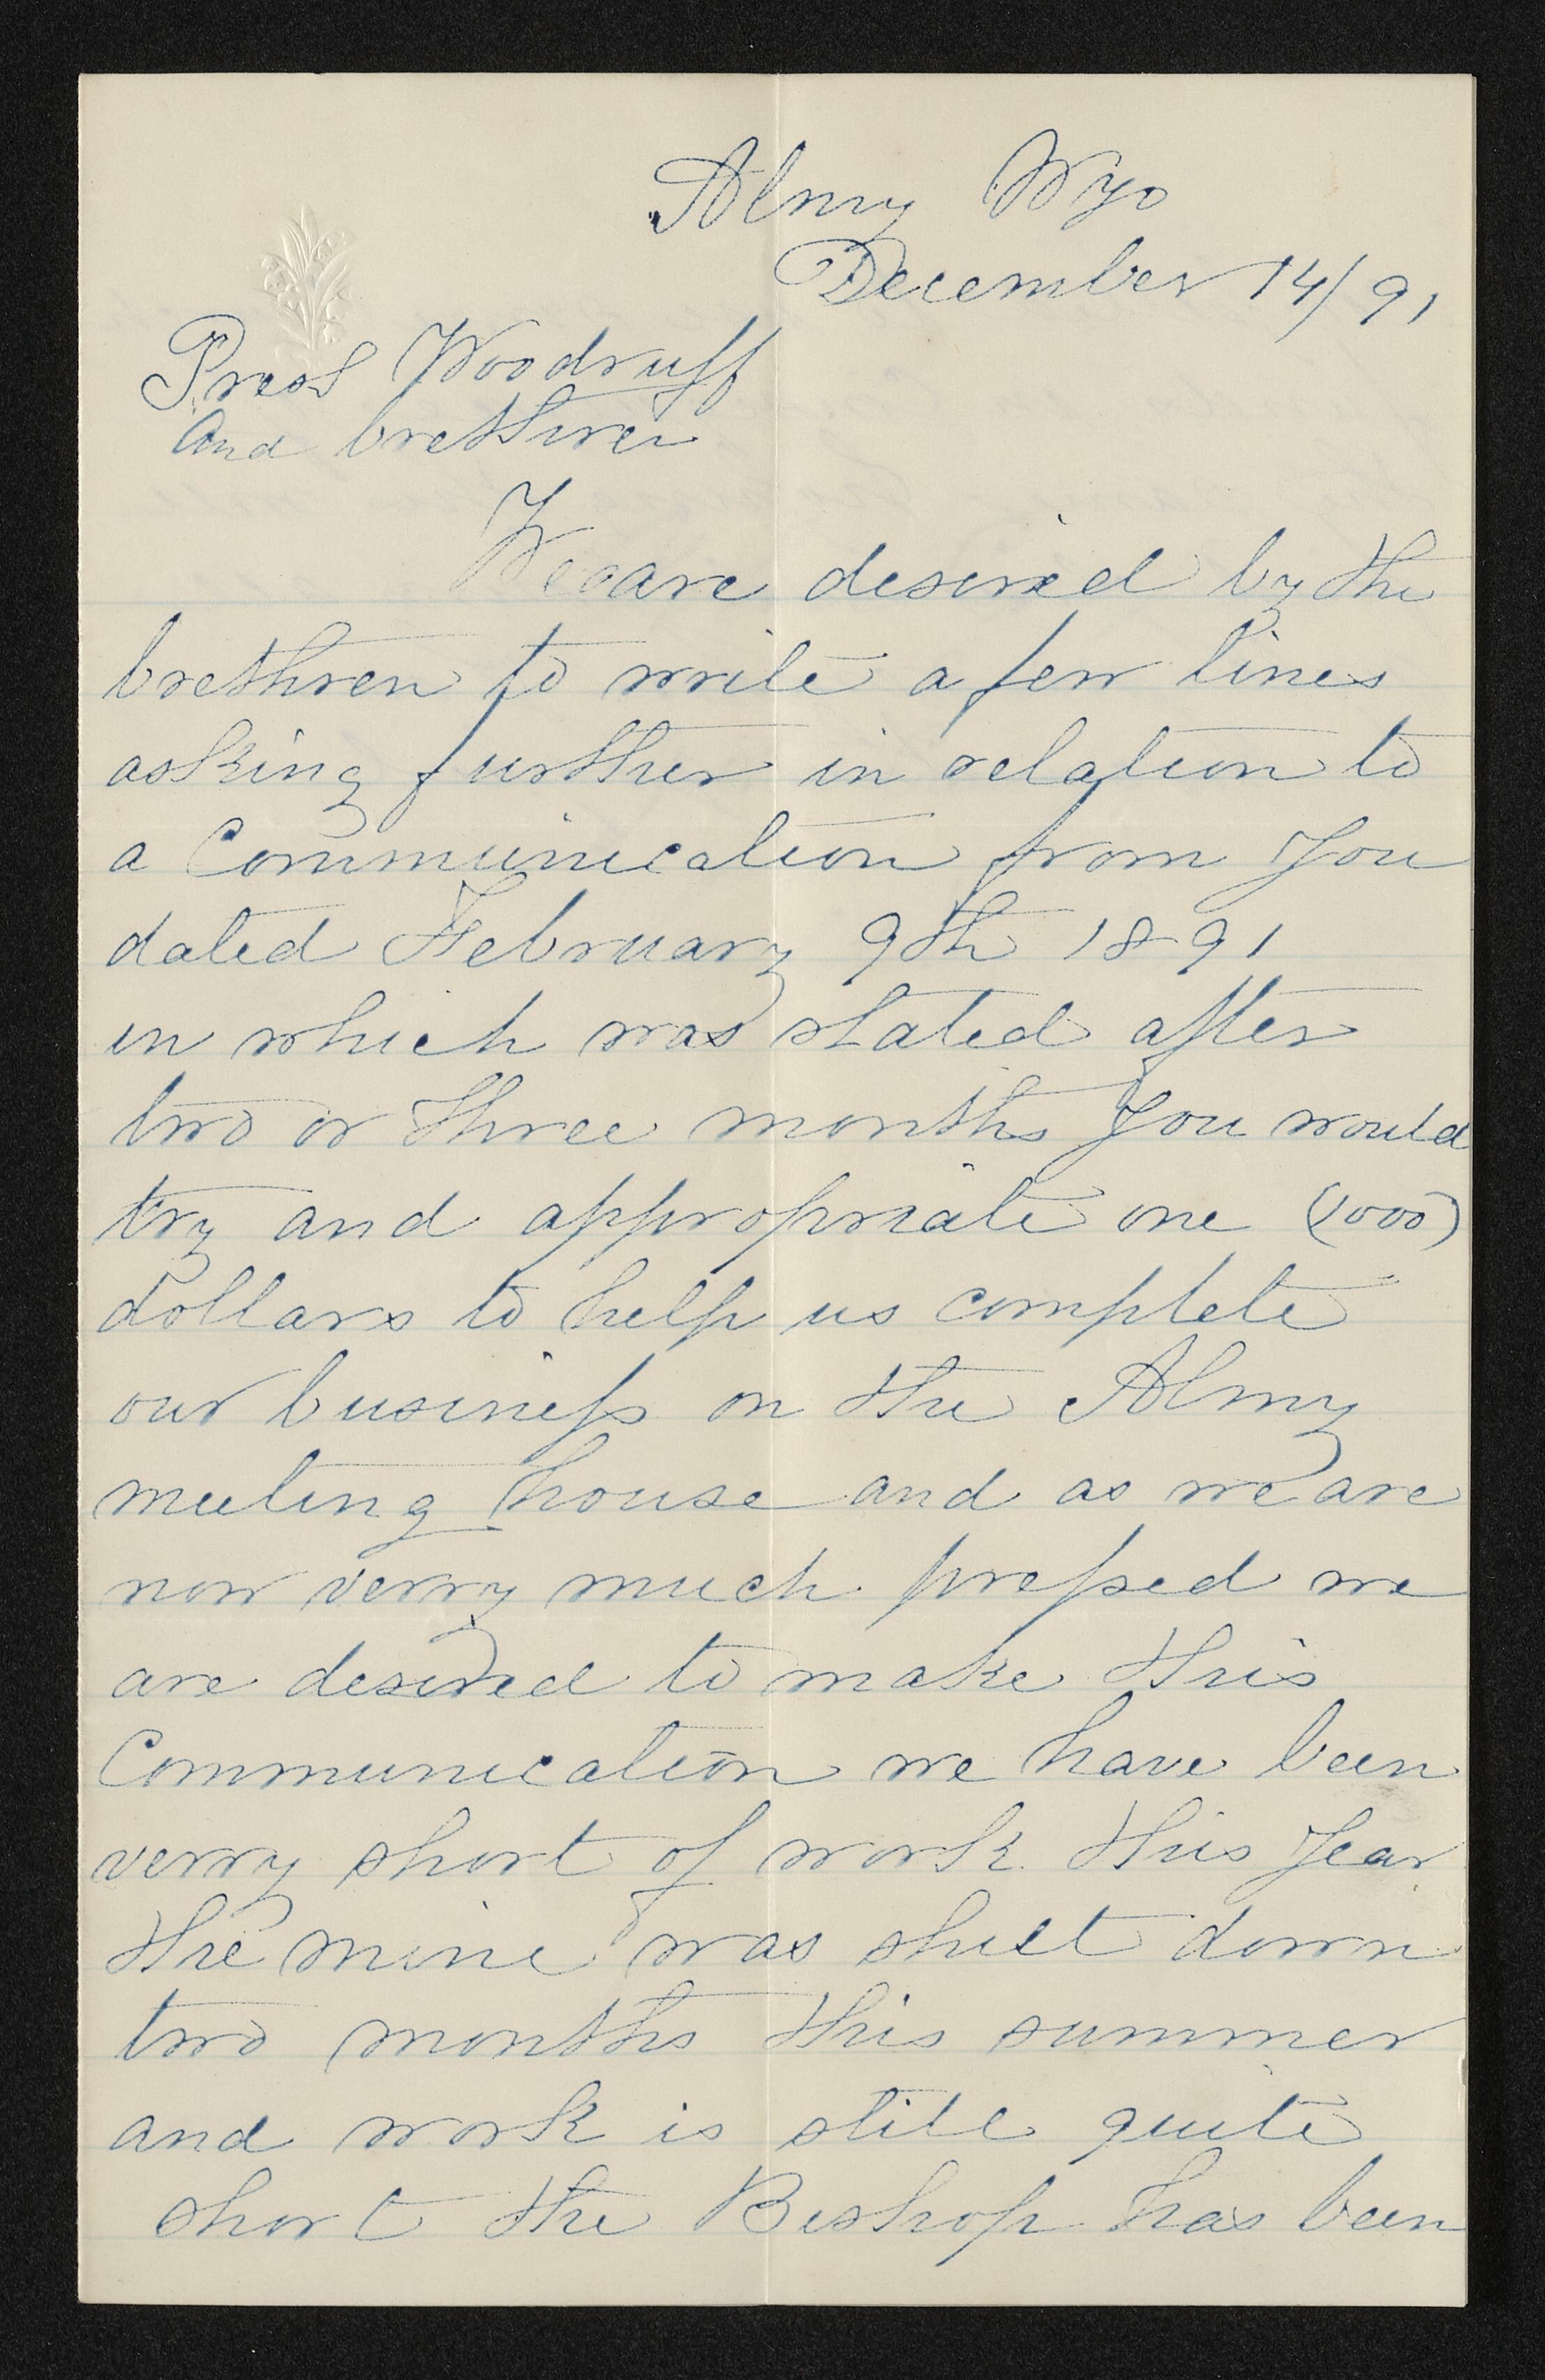 Almy Wyo
December 14/91
Prest Woodruff
And brethren
We are desired by the
brethren to write a few lines
asking further in relation to
a Communication from You
dated February 9th 1891
in which was stated after
two or three months You would
try and appropriate one (1000)
dollars to help us complete
our business on the Almy
meeting house and as we are
now verry much pressed we
are desired to make this
Communication we have been
verry short of work this Year
the mine was shut down
two months this summer
and work is still quite
short the Bishop has been